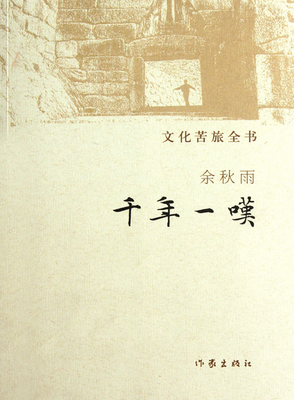 文化苦旅全书
余秋雨
千年一嘆
作家出版社